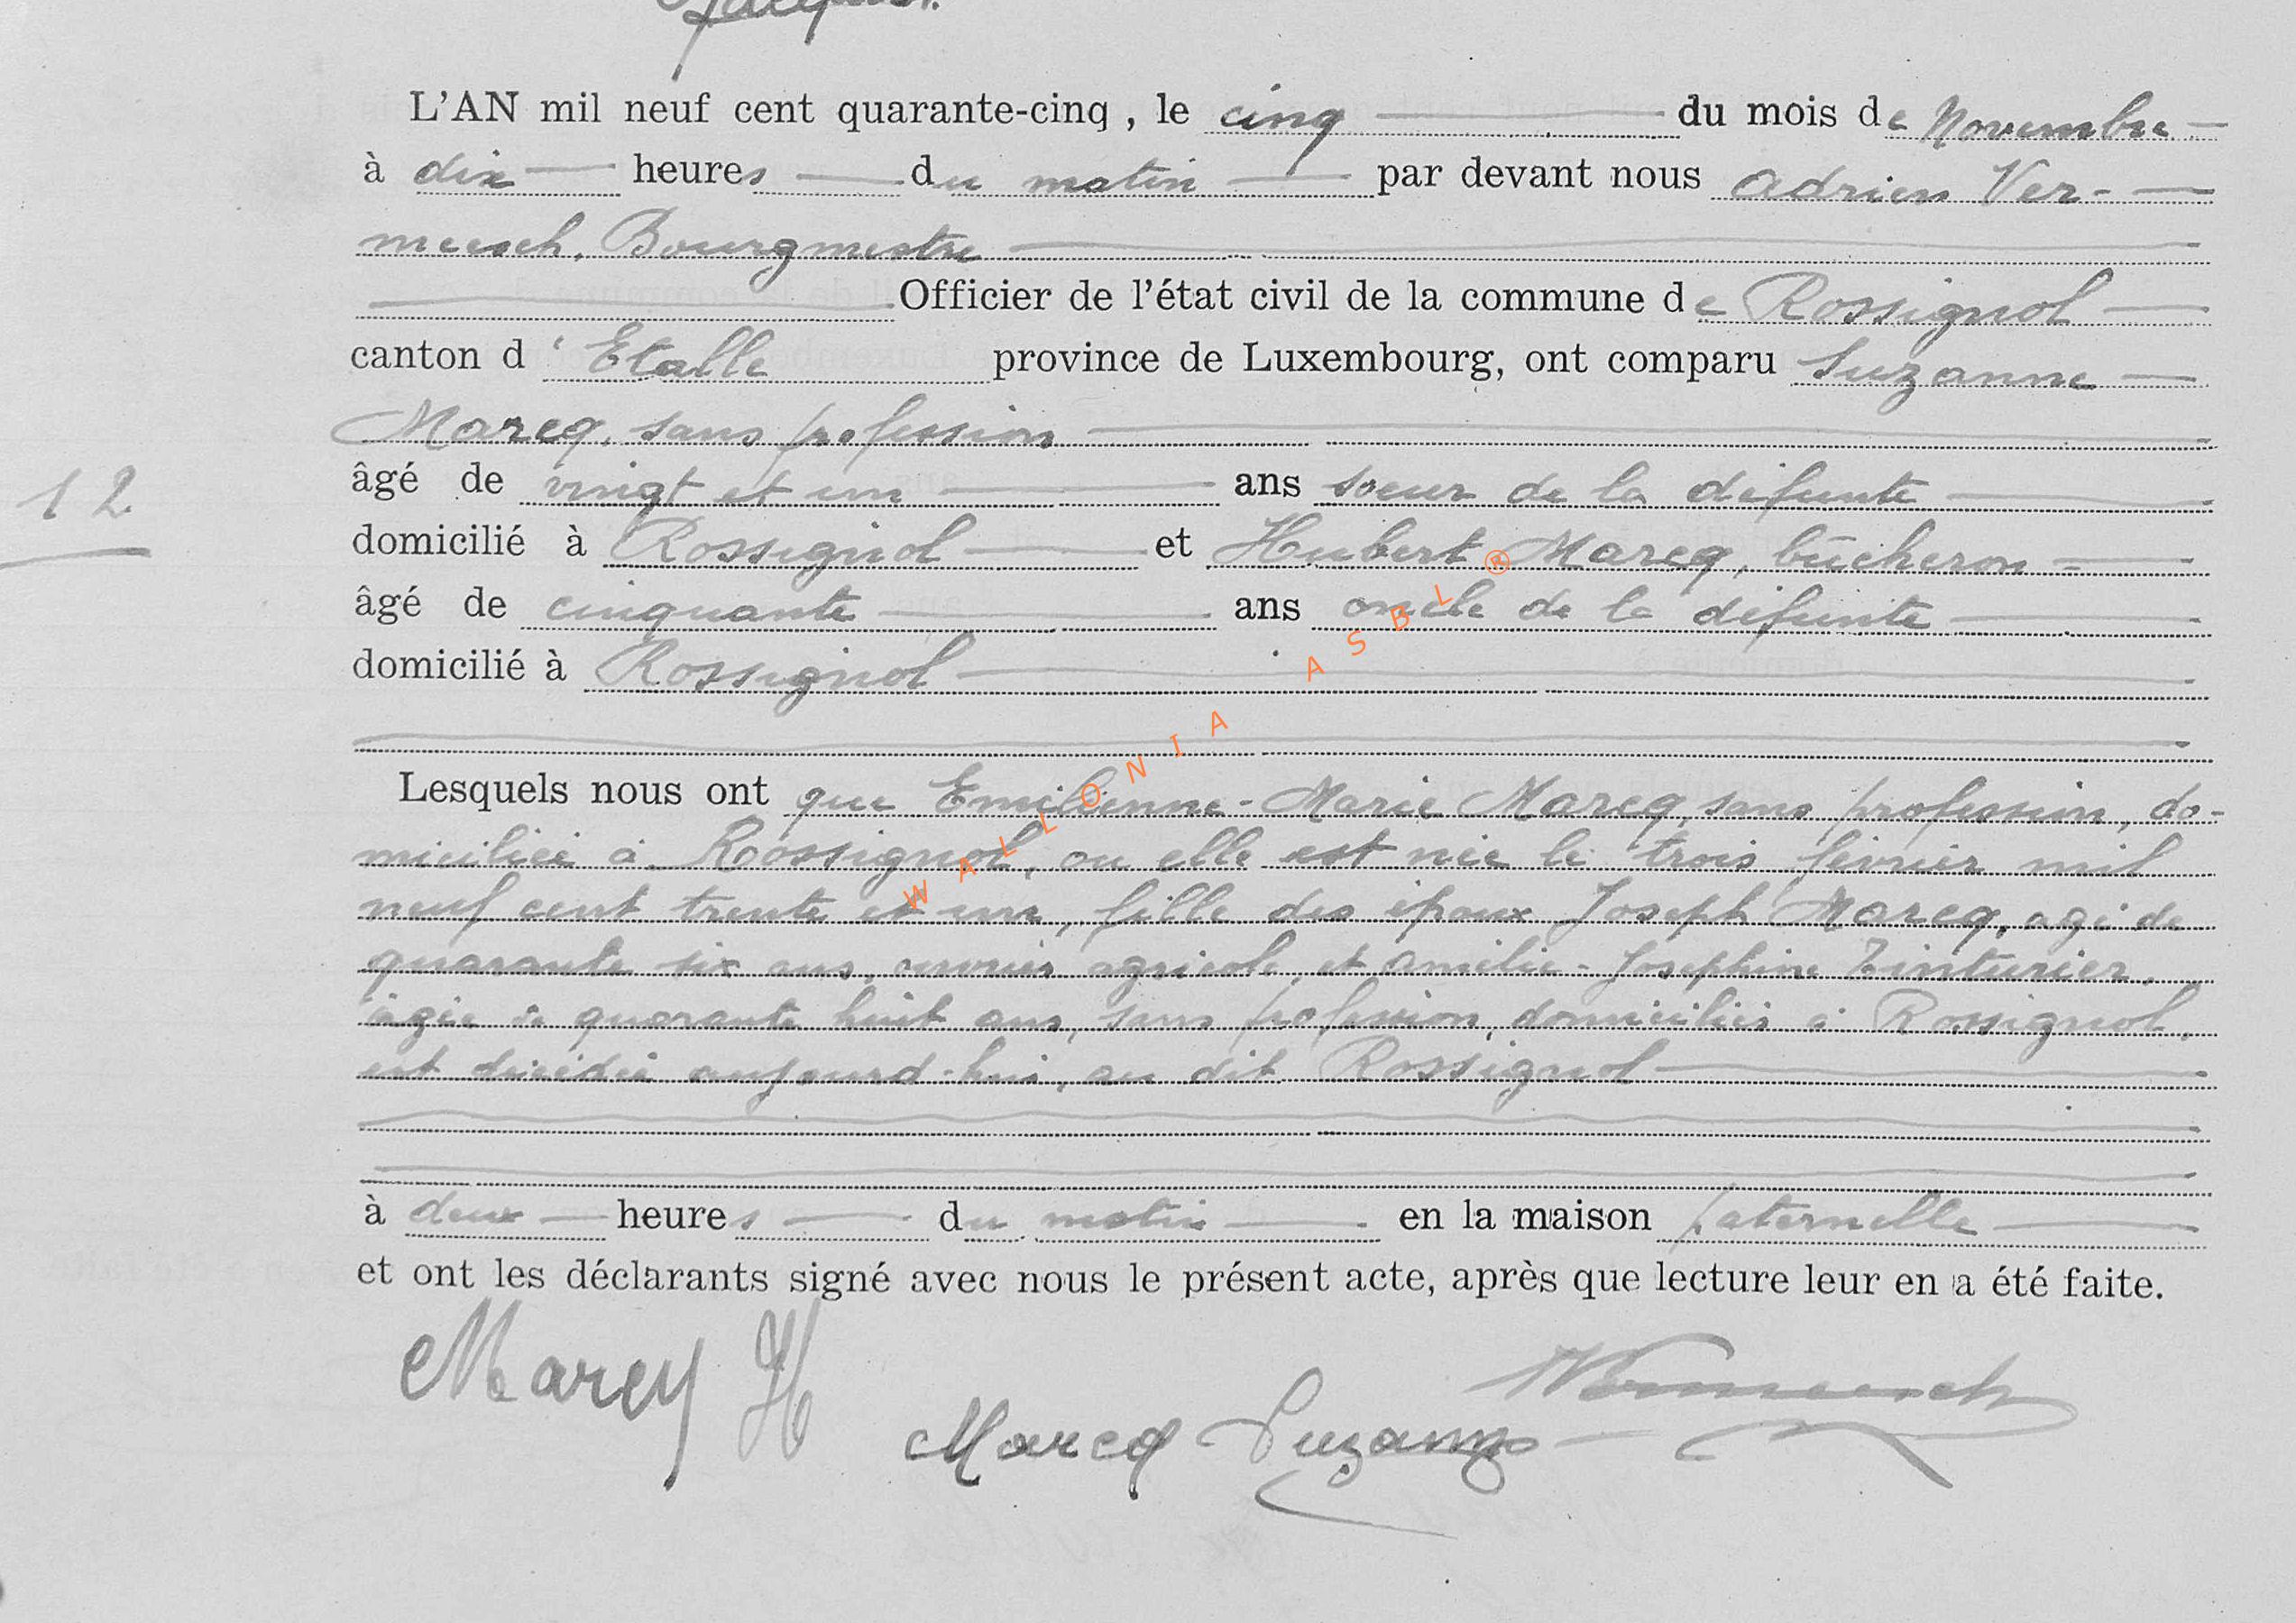 L'AN mil neuf cent quarante-cinq , le cinq du mois de Novembre
à dix heures du matin par devant nous Adrien Ver-
meesch, Bourgmestre
Officier de l'état civil de la commune de Rossignol
canton d'Etalle province de Luxembourg, ont comparu Suzanne
Marcq, sans profession
âgé de vingt et un ans soeur de la défunte
12
domicilié à Rossignol et Hubert Marcq, bûcheron
âgé de cinquante ans oncle de la défunte
domicilié à Rossignol
Lesquels nous ont que Emilienne-Marie Marcq, sans profession, do-
miciliée à Rossignol, ou elle est née le trois février mil
neuf cent trente et un, fille des époux Joseph Marcq, agé de
quarante six ans, ouvrier agricole, et Amélie-Joséphine Tinturier,
âgée de quarante huit ans, sans profession, domiciliés à Rossignol,
est décédée aujourd-hui, au dit Rossignol
à deux heures du matin en la maison paternelle
et ont les déclarants signé avec nous le présent acte, après que lecture leur en a été faite.
Marcq H
Marcq Suzanne
Vermeesch
WALLONIA ASBL ®